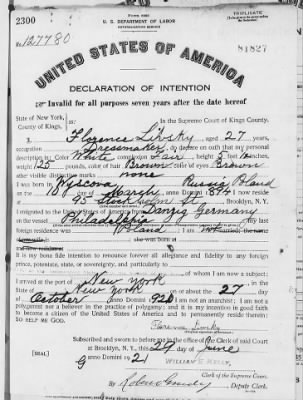 2300
FORM 2203
U. S. DEPARTMENT OF LABOR
NATURALIZATION SERVICE
TRIPLICATE
127780
81827
UNITED STATES OF AMERICA
DECLARATION OF INTENTION
Invalid for all purposes seven years after the date hereof
State of New York,
County of Kings, ss:
In the Supreme Court of Kings County.
I, Florence Livsky, aged 27 years,
occupation Dressmaker, do declare on oath that my personal
description is: Color White, complexion Fair, height 5 feet inches,
weight 125 pounds, color of hair Brown, color of eyes Brown
other visible distinctive marks none
I was born in Russia Poland
on the day of March, anno Domini 1894; I now reside
at 95 St., Brooklyn, N.Y.
I emigrated to the United States of America from Danzig Germany
on the vessel Philadelphia; my last
foreign residence was Poland; I am not married; the name
was born at
It is my bona fide intention to renounce forever all allegiance and fidelity to any foreign
prince, potentate, state, or sovereignty, and particularly to
of whom I am now a subject;
I arrived at the port of New York
State of New York, on or about the 27 day
of October, anno Domini 1920; I am not an anarchist; I am not a
polygamist nor a believer in the practice of polygamy; and it is my intention in good faith
to become a citizen of the United States of America and to permanently reside therein:
SO HELP ME GOD.
Subscribed and sworn to before me in the office of the Clerk of said Court
at Brooklyn, N.Y., this 24 day of June
[SEAL] anno Domini 1921
WILLIAM E. KELLY
Clerk of the Supreme Court.
By , Deputy Clerk.